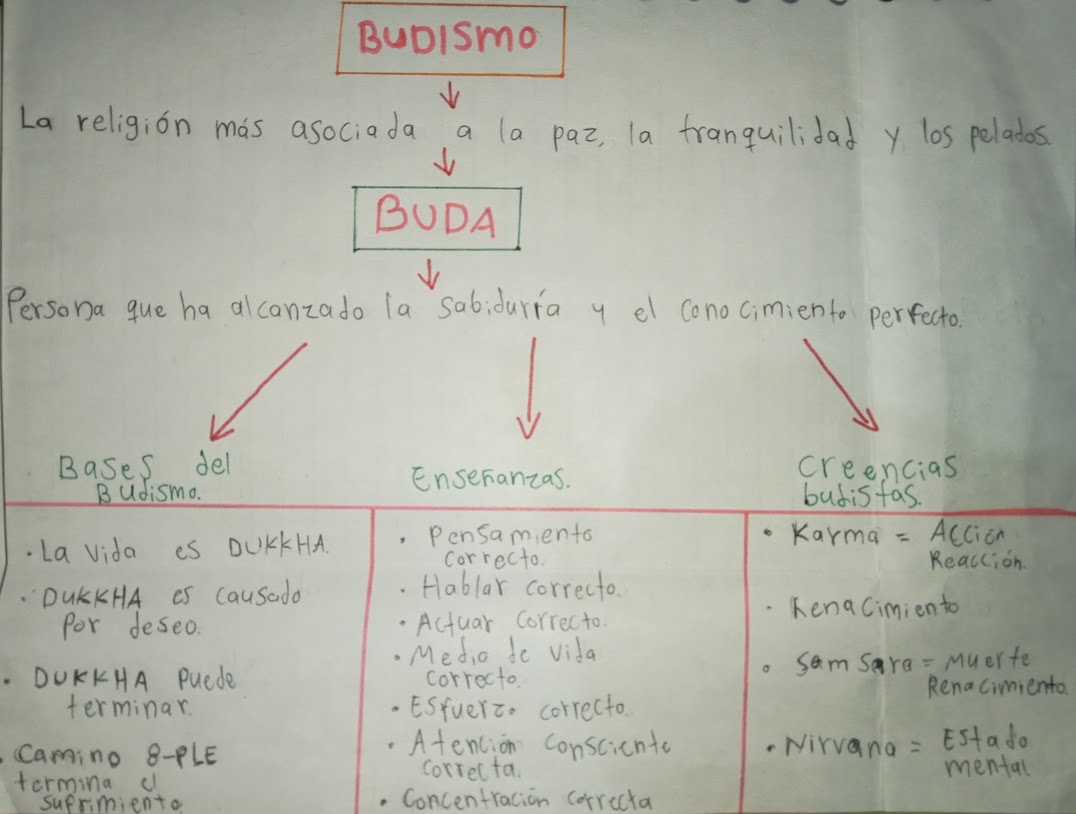 BUDISMO
La religión más asociada a la paz, la tranquilidad y los pelados.
BUDA
Persona que ha alcanzado la sabiduría y el conocimiento perfecto.
Bases del
Budismo.
• La vida es DUKKHA.
• DUKKHA es causado
por deseo.
• DUKKHA puede
terminar.
• Camino 8-PLE
termina el
sufrimiento
Enseñanzas.
• Pensamiento
correcto.
• Hablar correcto.
• Actuar correcto.
• Medio de vida
correcto.
• Esfuerzo correcto.
• Atención consciente
correcta.
• Concentración correcta
Creencias
budistas.
• Karma = Acción
Reacción.
• Renacimiento
• Samsara = Muerte
Renacimiento.
• Nirvana = Estado
mental